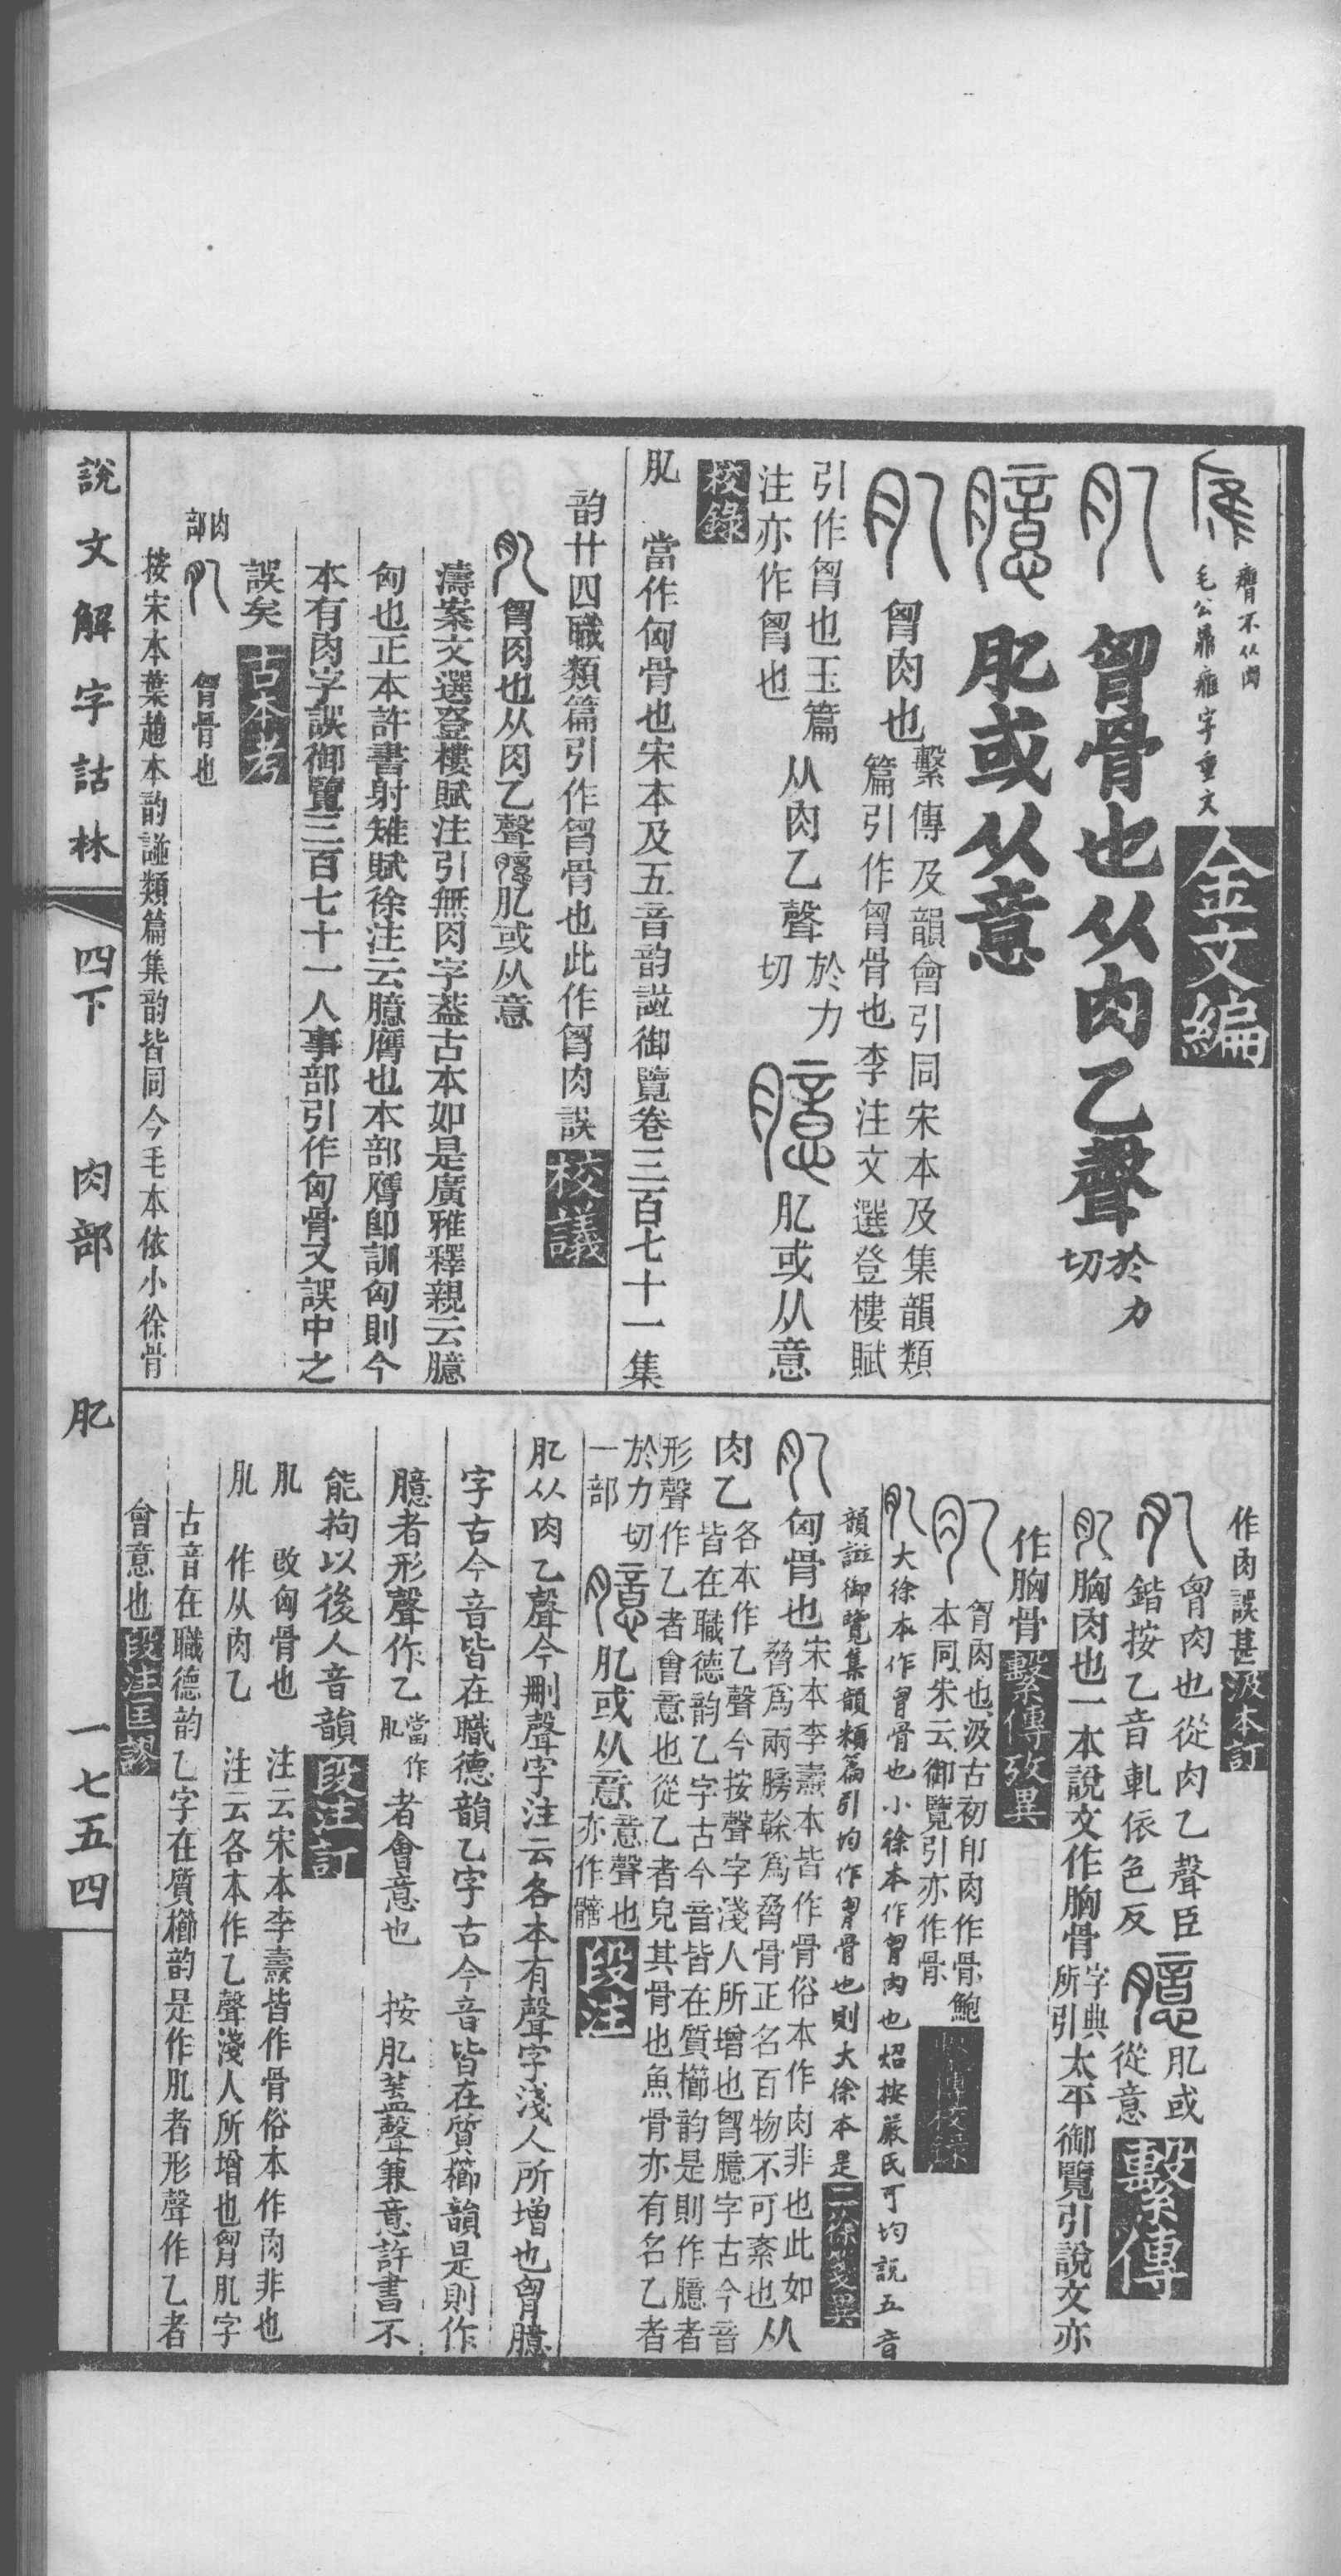 膺不从肉
毛公鼎雁字重文
金文編
肊
匈骨也从肉乙聲於力切
臆
肊或从意
肊
匈肉也繫傳及韻會引同宋本及集韻類
篇引作匈骨也李注文選登樓賦
引作匈也玉篇
注亦作匈也
从肉乙聲於力切
臆
肊或从意
校錄
肊 當作匈骨也宋本及五音韵譜御覽卷三百七十一集
韵廿四職類篇引作匈骨也此作匈肉誤校議
肊匈肉也从肉乙聲臆肊或从意
濤案文選登樓賦注引無肉字葢古本如是廣雅釋親云臆
匈也正本許書射雉賦徐注云臆膺也本部膺卽訓匈則今
本有肉字誤御覽三百七十一人事部引作匈骨又誤中之
誤矣古本考
肉部
肊 匈骨也
按宋本葉趙本韵譜類篇集韵皆同今毛本依小徐骨
作肉誤甚汲本訂
肊匈肉也從肉乙聲臣
鍇按乙音軋依色反
臆肊或
從意
繫傳
肊胸肉也一本說文作胸骨字典所引太平御覽引說文亦
作胸骨繫傳攷異
肊匈肉也汲古初印肉作骨鮑
本同朱云御覽引亦作骨
肊大徐本作匈骨也小徐本作匈肉也炤按嚴氏可均說五音
韻譜御覽集韻類篇引均作匈骨也則大徐本是二徐箋異
肊匈骨也宋本李燾本皆作骨俗本作肉非也此如
脅爲兩膀榦爲脅骨正名百物不可紊也从
肉乙各本作乙聲今按聲字淺人所增也匈臆字古今音
皆在職德韵乙字古今音皆在質櫛韵是則作臆者
形聲作乙者會意也從乙者皃其骨也魚骨亦有名乙者
於力切一部
臆肊或从意意聲也亦作
段注
肊从肉乙聲今刪聲字注云各本有聲字淺人所增也匈臆
字古今音皆在職德韻乙字古今音皆在質櫛韻是則作
臆者形聲作乙當作肊者會意也 按肊葢聲兼意許書不
能拘以後人音韻段注訂
肊 改匈骨也 注云宋本李燾皆作骨俗本作肉非也
肊 作从肉乙 注云各本作乙聲淺人所增也匈肊字
古音在職德韵乙字在質櫛韵是作肊者形聲作乙者
會意也段注匡謬
說文解字詁林 四下 肉部 肊 一七五四